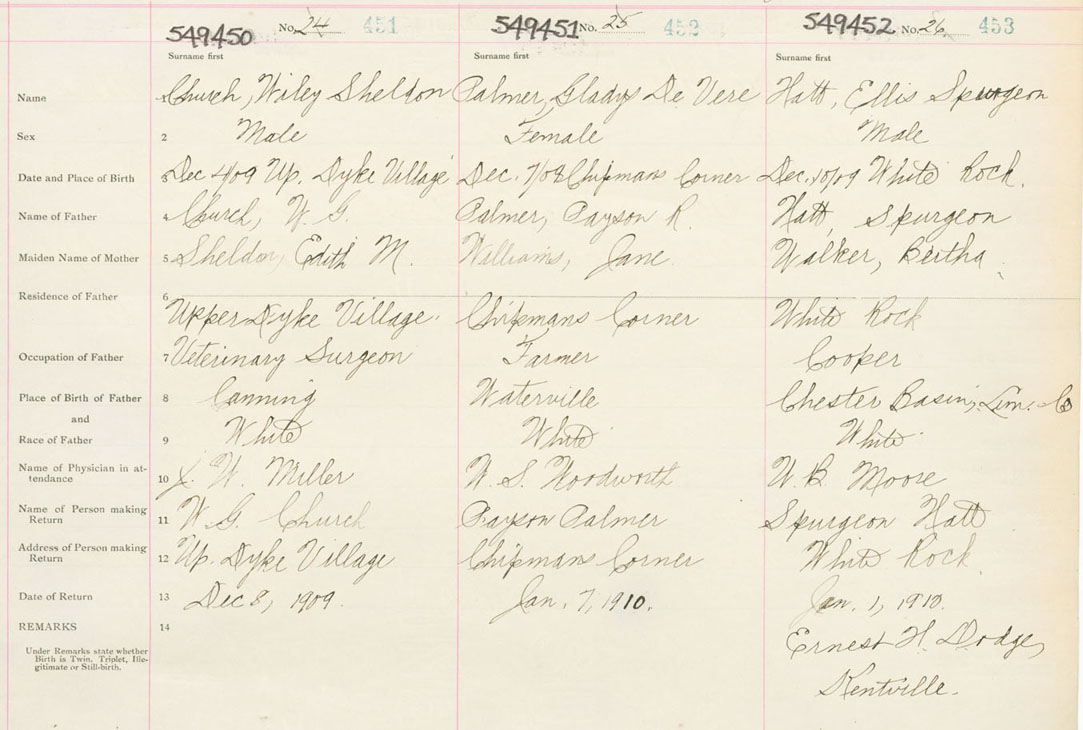 549450 No. 24 451 549451 No. 25 452 549452 No. 26 453
Surname first Surname first Surname first
Name 1 Church, Wiley Sheldon Palmer, Gladys De Vere Hatt, Ellis Spurgeon
Sex 2 Male Female Male
Date and Place of Birth 3 Dec 4/09 Up. Dyke Village Dec. 7/09 Chipmans Corner Dec. 10/09 White Rock.
Name of Father 4 Church, W. G. Palmer, Payson R. Hatt, Spurgeon
Maiden Name of Mother 5 Sheldon, Edith M. Williams, Jane. Walker, Bertha
Residence of Father 6
Upper Dyke Village. Chipmans Corner White Rock
Occupation of Father 7 Veterinary Surgeon Farmer Cooper
Place of Birth of Father 8 Canning Waterville Chester Basin, Lun. Co
and
Race of Father 9 White White White
Name of Physician in at-
tendance 10 W. Miller W. S. Woodworth W. B. Moore
Name of Person making
Return 11 W. G. Church Payson Palmer Spurgeon Hatt
Address of Person making
Return 12 Up. Dyke Village Chipmans Corner White Rock.
Date of Return 13 Dec 8, 1909. Jan. 7, 1910. Jan. 1, 1910.
REMARKS 14
Ernest H. Dodge,
Under Remarks state whether
Birth is Twin, Triplet, Ille-
gitimate or Still-birth.
Kentville.